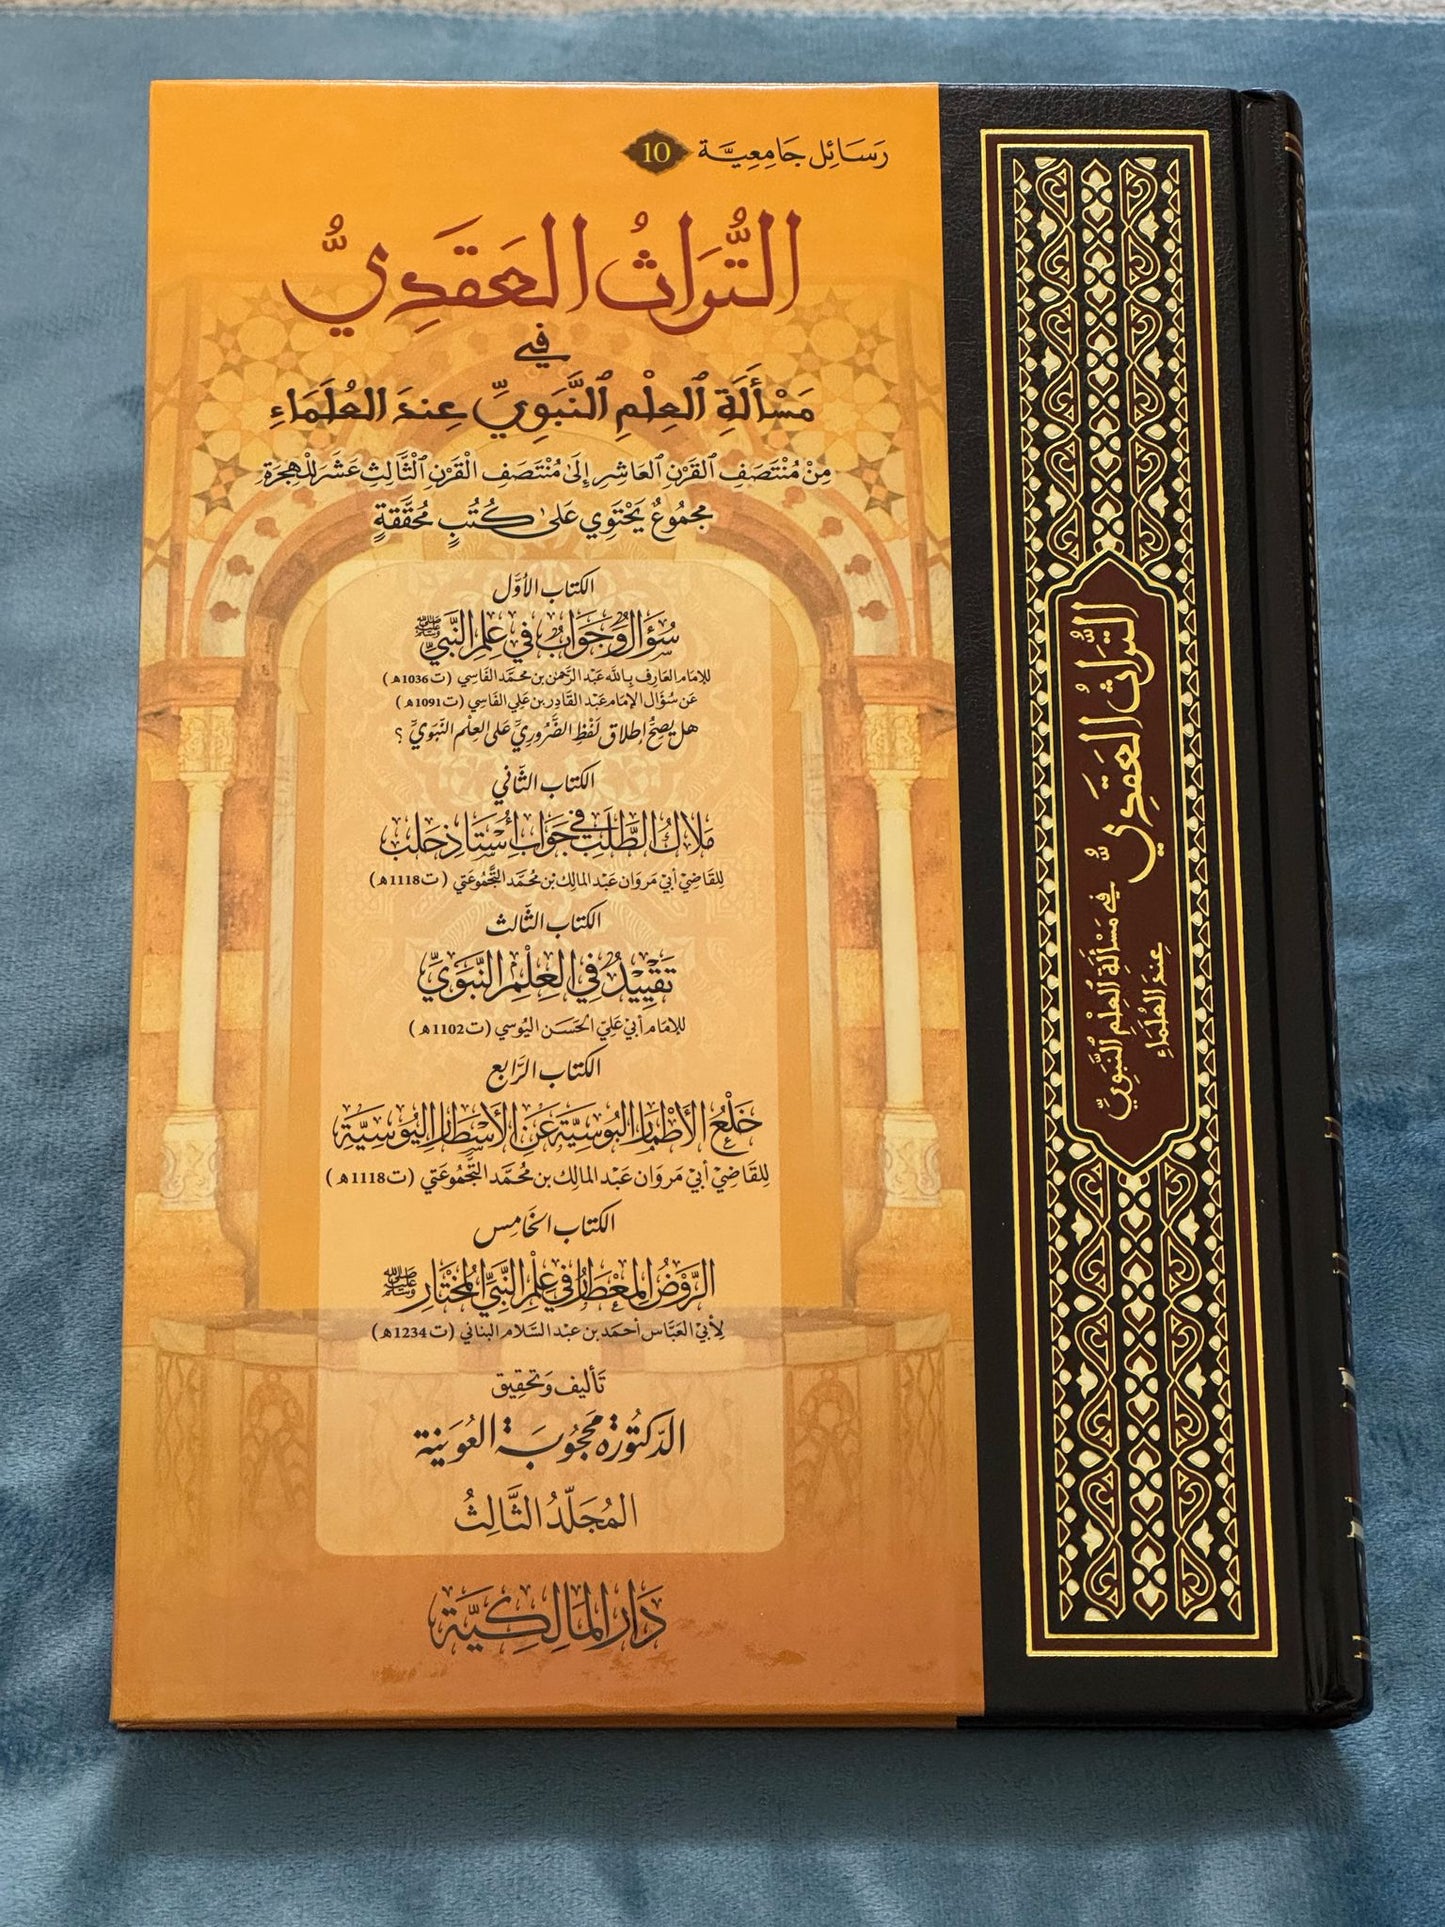 رَسَائِل جَامِعِيَّة 10
التُّرَاثُ العَقَدِيُّ
فِي
مَسْأَلَةِ العِلْمِ النَّبَوِيِّ عِندَ العُلَمَاءِ
مِنْ مُنْتَصَفِ القَرْنِ العَاشِرِ إِلَى مُنْتَصَفِ القَرْنِ الثَّالِثَ عَشَرَ لِلْهِجْرَةِ
مَجْمُوعٌ يَحْتَوِي عَلَى كُتُبٍ مُحَقَّقَةٍ
الكتاب الأوَّل
سُؤَالٌ وَجَوَابٌ فِي عِلْمِ النَّبِيِّ ﷺ
للإمَام العَارِف بِاللَّه عَبْد الرَّحمن بن محمَّد الفَاسِي (ت1036هـ)
عَن سُؤَال الإمَام عَبْد القَادِر بن عَلي الفَاسِي (ت1091هـ)
هل يَصِحُّ إطلاق لَفْظِ الضَّرُورِيِّ عَلى العِلْم النَّبَوِيِّ ؟
الكتاب الثَّاني
مَلَاكُ الطَّلَبِ فِي جَوَابِ أُسْتَاذِ حَلَب
لِلقَاضِيْ أَبِي مَروَان عَبْد المَالِك بن مُحَمَّد التَّجْمُوعَتي (ت1118هـ)
الكتاب الثَّالث
تَقْيِيْدٌ فِي العِلْمِ النَّبَوِيِّ
للإمَام أَبِيْ عَلِيّ الحَسَن اليُوسي (ت1102هـ)
الكتاب الرَّابع
خَلْعُ الأَطْمَارِ البُوسِيَّةِ عَنِ الأَسْطَارِ اليُوسِيَّةِ
لِلقَاضِيْ أَبِي مَروَان عَبْد المَالِك بن مُحَمَّد التَّجْمُوعَتي (ت1118هـ)
الكتاب الخَامِس
الرَّوْضُ المِعْطَارُ فِي عِلْمِ النَّبِيِّ المُخْتَارِ ﷺ
لِأَبِيْ العَبَّاس أحمَد بن عبد السَّلام البناني (ت1234هـ)
تَأليف وَتَحقِيق
الدّكتُورَة مَحجُوبَة العُوَينَة
المُجَلَّدُ الثَّالِثُ
دَار المَالِكِيَّة
التُّرَاثُ العَقَدِيُّ
فِي مَسْأَلَةِ العِلْمِ النَّبَوِيِّ
عِندَ العُلَمَاءِ